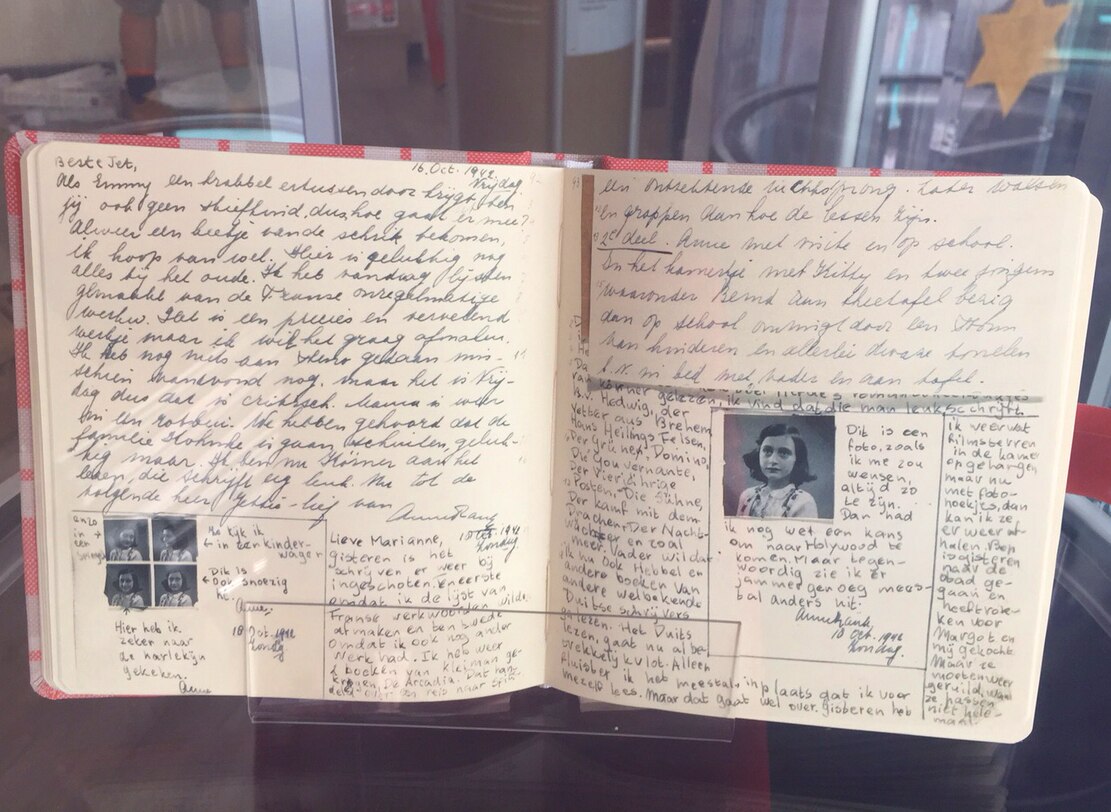 Beste Jet,
16 Oct. 1942.
Vrijdag
Als Emmy een krabbel ertussen door krijgt, ben
jij ook geen stiefkind, dus hoe gaat er mee?
Alweer een beetje van de schrik bekomen,
ik hoop van wel. Hier is gelukkig nog
alles bij het oude. Ik heb vandaag lijsten
gemaakt van de Franse onregelmatige
werkw. Het is een precies en vervelend
werkje maar ik wil het graag afmaken.
Ik heb nog niets aan steno gedaan mis-
schien vanavond nog, maar het is Vrij-
dag dus dat is critisch. Mama is weer
in een robbui. We hebben gehoord dat de
familie is gaan schuilen, geluk-
kig maar. Ik ben nu Körner aan het
lezen, die schrijft erg leuk. Nu tot de
volgende keer Gebis-lief van
Anne Frank
enzo
in
een
Zo kijk ik
in een kinder-
wagen
Dit is
ook snoezig
hè.
Anne.
18 Oct. 1942
Zondag
Hier heb ik
zeker naar
de harlekijn
gekeken.
Anne
Lieve Marianne,
18 Oct. 1942
Zondag
gisteren is het
schrijven er weer bij
ingeschoten. Ten eerste
omdat ik de lijst van
Franse werkwoorden wilde
afmaken en ten tweede
omdat ik ook nog ander
werk had. Ik heb weer
2 boeken van Kleiman ge-
kregen, De Arcadia. Dat han-
delt over een reis naar Spits-
een ontzettende luchtsprong. Later walsen
en grappen dan hoe de lessen zijn.
2e deel. Anne met visite en op school.
In het kamertje met Kitty en twee jongens
waaronder Bernd aan theetafel bezig
dan op school omringd door een
van kinderen en allerlei dwaze tonelen
b.v. in bed met vader en aan tafel.
körner gelezen, ik vind dat die man leuk schrijft.
b.v. Hedwig, der
vetter aus Bremen
Hans Heilings Felsen,
Der Grüne Domino,
Die Gouvernante,
Der Vierjährige
Posten, Die Sühne,
Der Kampf mit dem
Drachen, Der Nacht-
wächter en zoal
meer. Vader wil dat
ik nu ook Hebbel en
andere boeken van
andere welbekende
Duitse schrijvers
ga lezen. Het Duits
lezen, gaat nu al be-
trekkelijk vlot. Alleen
fluister ik het meestal, in plaats dat ik voor
mezelf lees. Maar dat gaat wel over. Gisteren heb
Dit is een
foto, zoals
ik me zou
wensen,
altijd zo
te zijn.
Dan had
ik nog wel een kans
om naar Holywood te
komen. Maar tegen-
woordig zie ik er
jammer genoeg mees-
tal anders uit.
Anne Frank.
18 Oct. 1942
Zondag.
ik weer wat
filmsterren
in de kamer
opgehangen
maar nu
met foto-
hoekjes, dan
kan ik ze
er weer af
halen. Miep
is gisteren
naar de
stad ge-
gaan en
heeft rok-
ken voor
Margot en
mij gekocht
Maar ze
moeten weer
geruild, want
ze passen
niet hele-
maal.